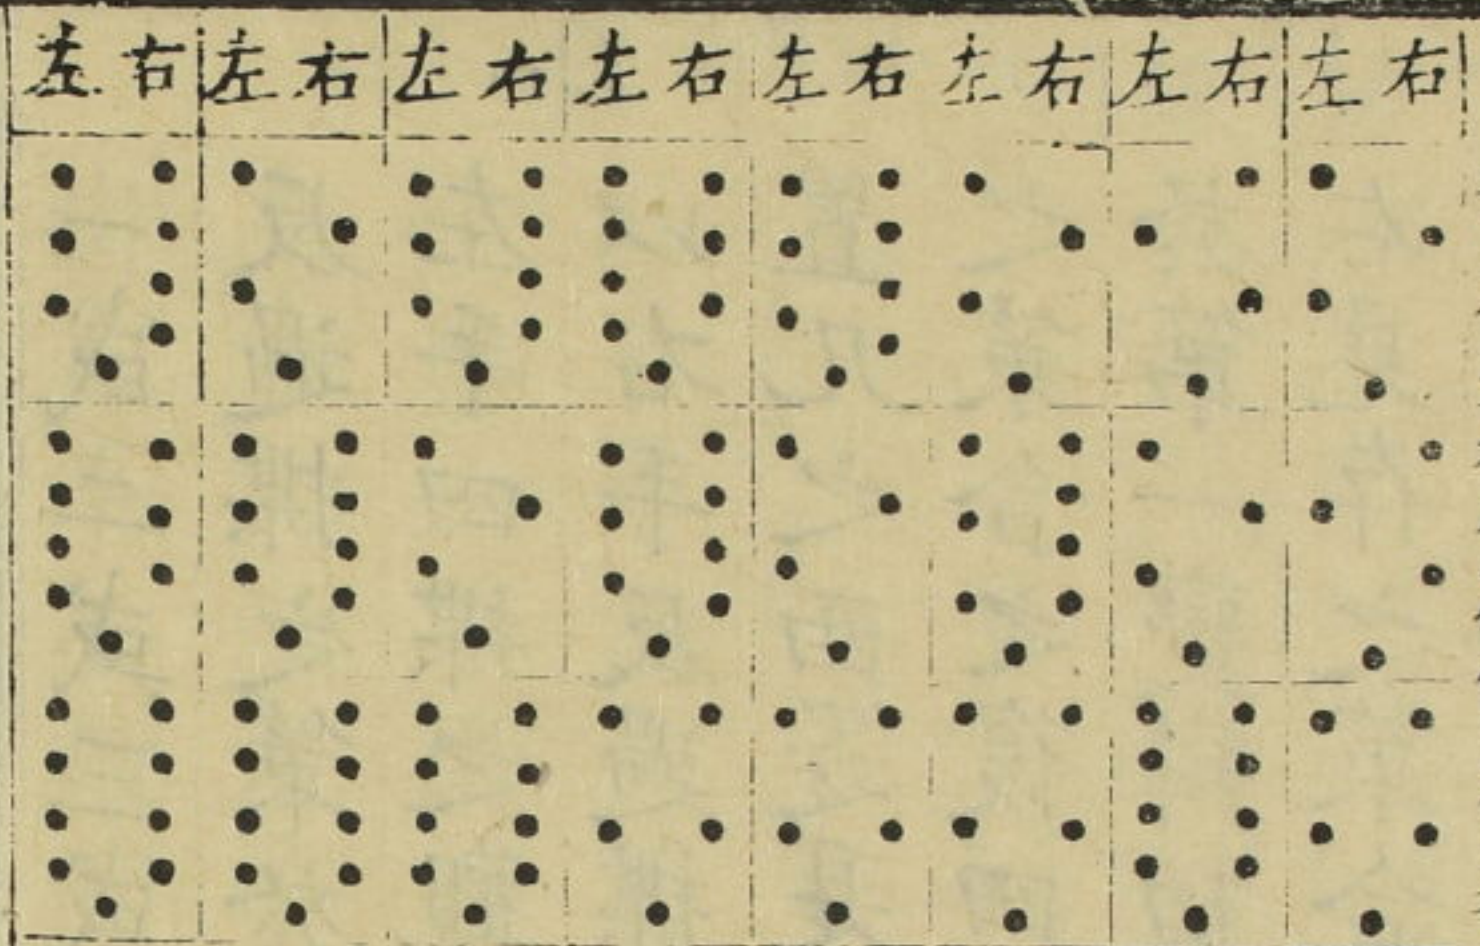 右左右左右左右左右左右左右左右左